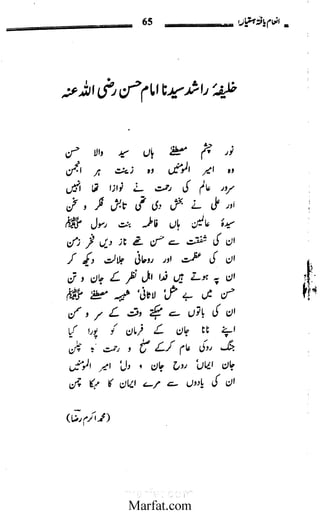 انعام یافتہ ہستیاں
65
خلیفۂ راشد سیدنا امام حسن رضی اللہ عنہ
نور چشم مصطفےٰ ہاں سید والا حسن
وہ امیر المومنیں وہ زینت ہر انجمن
سرور عالم کی رحمت نے نوازا تھا انہیں
اور علی نے بخش دی تھی تابش فکر و سخن
سیدۂ عالمیں ہاں فاطمہ بنت رسول ﷺ
ان کی شفقت سے حسن تھے ناز دیں فخر زمن
ان کی عظمت اور روحانی جلالت دیکھ کر
ان پہ ہوتے ہیں فدا اہل نظر کے جان و تن
حسن میں بے مثل لاثانی شبیہہ مصطفےٰ ﷺ
ان کی باتوں سے مہکتے وقت کے سرو و سمن
اپنے نانا جان کے فرمان کو پورا کیا
جنگ روکی عام کرکے صلح و رحمت کا چلن
جان ایماں روح جان و دل امیر المومنیں
ان کی یادوں سے مرے ایمان کا مہکا چمن
(محمد اکرم رضا)
Marfat.com